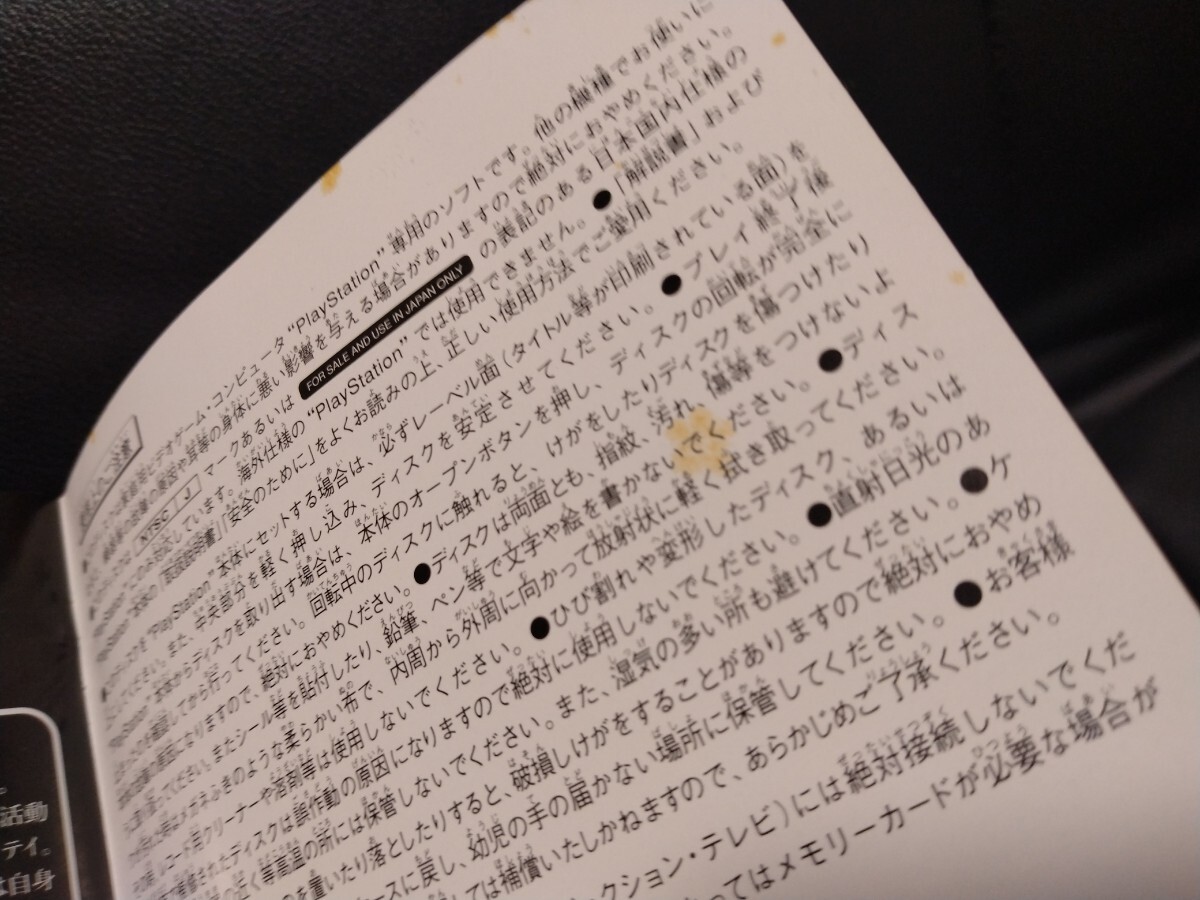 使用上のご注意
家庭用ビデオゲーム・コンピュータ“PlayStation”専用のソフトです。他の機種でお使いに
身体に悪い影響を与える場合がありますので絶対におやめください。
NTSC J マークあるいは FOR SALE AND USE IN JAPAN ONLY の表記のある日本国内仕様の
海外仕様の“PlayStation”では使用できません。●「解説書」および
「取扱説明書」「安全のために」をよくお読みの上、正しい使用方法でご愛用ください。
“PlayStation”本体にセットする場合は、必ずレーベル面(タイトル等が印刷されている面)を
してください。また、中央部分を軽く押し込み、ディスクを安定させてください。●プレイ終了後
“PlayStation”本体からディスクを取り出す場合は、本体のオープンボタンを押し、ディスクの回転が完全に
を確認してから行ってください。回転中のディスクに触れると、けがをしたりディスクを傷つけたり
原因になりますので、絶対におやめください。●ディスクは両面とも、指紋、汚れ、傷等をつけないよ
ください。またシール等を貼付したり、鉛筆、ペン等で文字や絵を書かないでください。●ディス
メガネふきのような柔らかい布で、内周から外周に向かって放射状に軽く拭き取ってください。
レコード用クリーナーや溶剤等は使用しないでください。●ひび割れや変形したディスク、あるいは
補修されたディスクは誤作動の原因になりますので絶対に使用しないでください。●直射日光のあ
近く等高温の所には保管しないでください。また、湿気の多い所も避けてください。●ケ
のを置いたり落としたりすると、破損しけがをすることがありますので絶対におやめ
ースに戻し、幼児の手の届かない場所に保管してください。●お客様
しては補償いたしかねますので、あらかじめご了承ください。
クション・テレビ)には絶対接続しないでくだ
ってはメモリーカードが必要な場合が
活動
テイ。
は自身